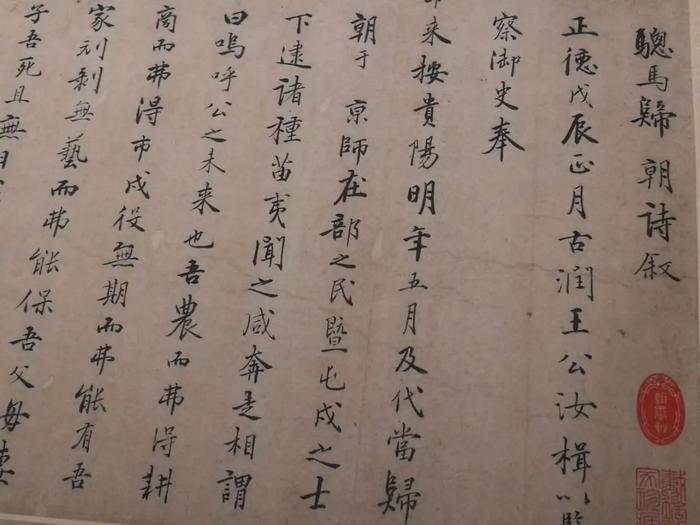 驄馬歸朝詩叙
正德戊辰正月古潤王公汝楫以監
察御史奉
來按貴陽明年五月及代當歸
朝于京師在部之民暨屯戍之士
下逮諸種苗夷聞之咸奔走相謂
曰嗚呼公之未來也吾農而弗得耕
商而弗得市戍役無期而弗能有吾
家刓剝無藝而弗能保吾父母妻
子吾死且無日